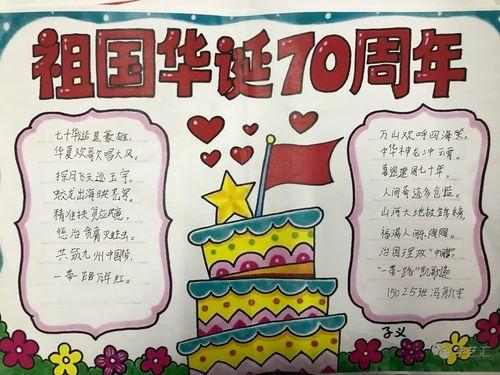 祖国华诞70周年
七十华诞显豪雄,
华夏欢歌唱大风。
探月飞天巡玉宇,
蛟龙出海映苍穹。
精准扶贫应民意,
惩治贪腐灭蛀虫。
共筑九州中国梦,
一带一路万年红。
万山欢呼四海笑,
中华神龙冲云霄。
喜迎建国七十年,
人间奇迹多
山河大地披锦绣,
福满人间乐陶陶。
治国理政"中"
"一带一路"凯歌
15025班冯新宇
子义
学艺汇